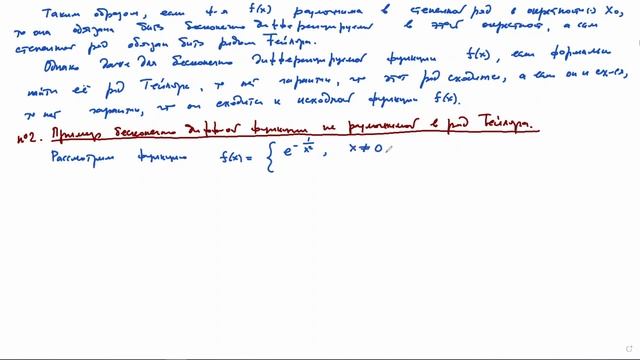 Таким образом, если ф-я f(x) разложима в степенной ряд в окрестности x₀,
то она обязана быть бесконечно дифференцируемой в этой окрестност., а сам
степенной ряд обязан быть рядом Тейлора.
Однако даже для бесконечно дифференцируемой функции f(x), если формально
найти её ряд Тейлора, то нет гарантии, что этот ряд сходится, а если он и сх-ся,
то нет гарантии, что он сходится к исходной функции f(x).
п°2. Пример бесконечно дифф-ой функции не разложимой в ряд Тейлора.
Рассмотрим функцию f(x) = { e^{-1/x²}, x ≠ 0